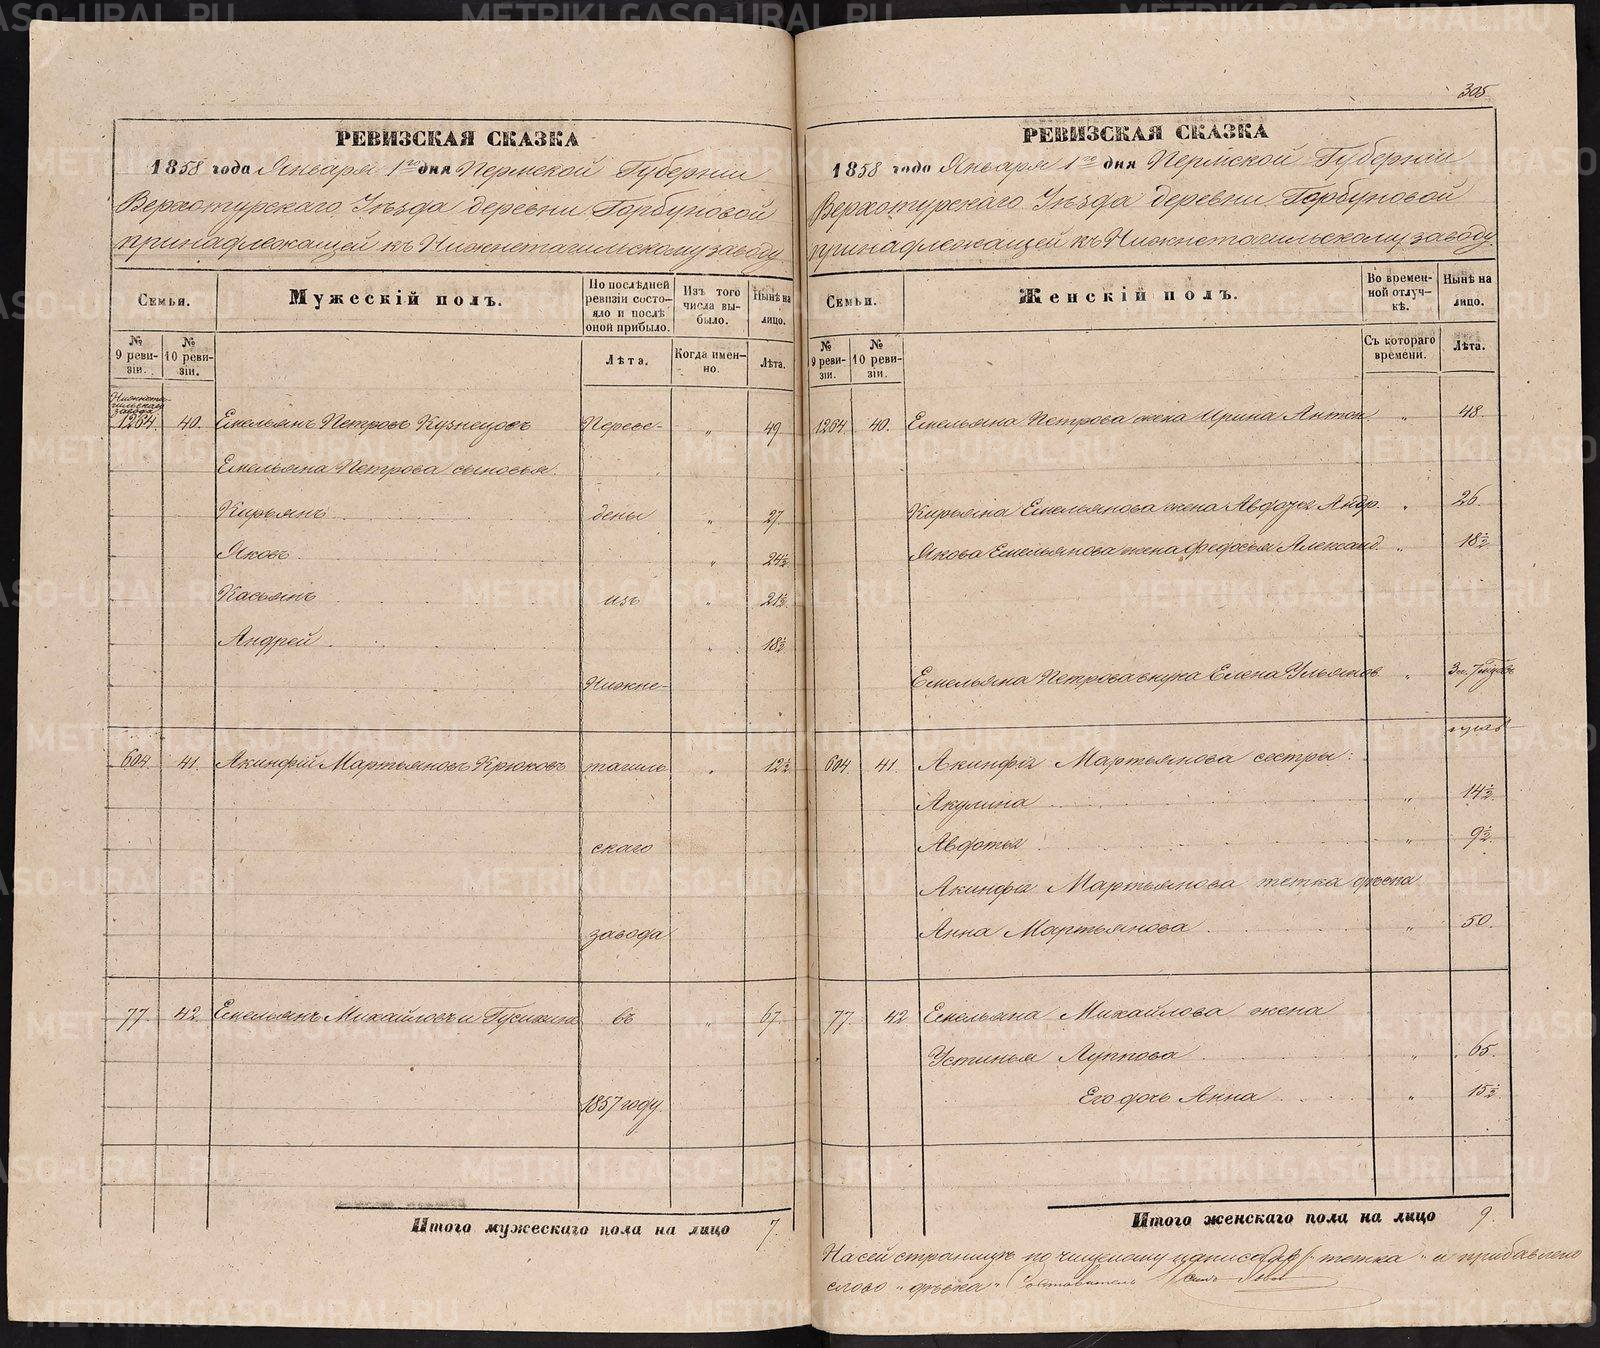 305
РЕВИЗСКАЯ СКАЗКА
1858 года Января 1го дня Пермской Губернии
Верхотурскаго Уѣзда деревни Горбуновой
принадлежащей къ Нижнетагильскому заводу
Семьи.
Мужескій полъ.
По послѣдней ревизіи состояло и послѣ оной прибыло.
Изъ того числа выбыло.
Нынѣ на лицо.
№ 9 ревизіи.
№ 10 ревизіи.
Лѣта.
Когда именно.
Лѣта.
Нижнетагильскаго завода
1264. 40. Емельянъ Петровъ Кузнецовъ Пересе- " 49
Емельяна Петрова сыновья
Кирьянъ дены " 27.
Яковъ " 24½
Касьянъ изъ " 21½
Андрей " 18½
Нижне-
604. 41. Акинфій Мартьяновъ Крюковъ тагиль " 12½
скаго
завода
77. 42. Емельянъ Михайловъ въ " 67.
1857 году.
Итого мужескаго пола на лицо 7.
РЕВИЗСКАЯ СКАЗКА
1858 года Января 1го дня Пермской Губерніи
Верхотурскаго Уѣзда деревни Горбуновой
принадлежащей къ Нижнетагильскому заводу
Семьи.
Женскій полъ.
Во временной отлучкѣ.
Нынѣ на лицо.
№ 9 ревизіи.
№ 10 ревизіи.
Съ котораго времени.
Лѣта.
1264 40. Емельяна Петрова жена Ирина Антон. " 48.
Кирьяна Емельянова жена Авдотья Андр. " 26.
Якова Емельянова жена Федосья Александ. " 18½
Емельяна Петрова внука Елена Ульянов. "
604 41. Акинфія Мартьянова сестры:
Акулина " 14½
Авдотья " 9½
Акинфія Мартьянова тетка дѣвка
Анна Мартьянова " 50.
77. 42 Емельяна Михайлова жена
Устинья Луппова " 65.
Его дочь Анна " 15½
Итого женскаго пола на лицо 9.
На сей страницѣ по чищеному написано "тетка" и прибавлено
слово "дѣвка"
METRIKI.GASO-URAL.RU